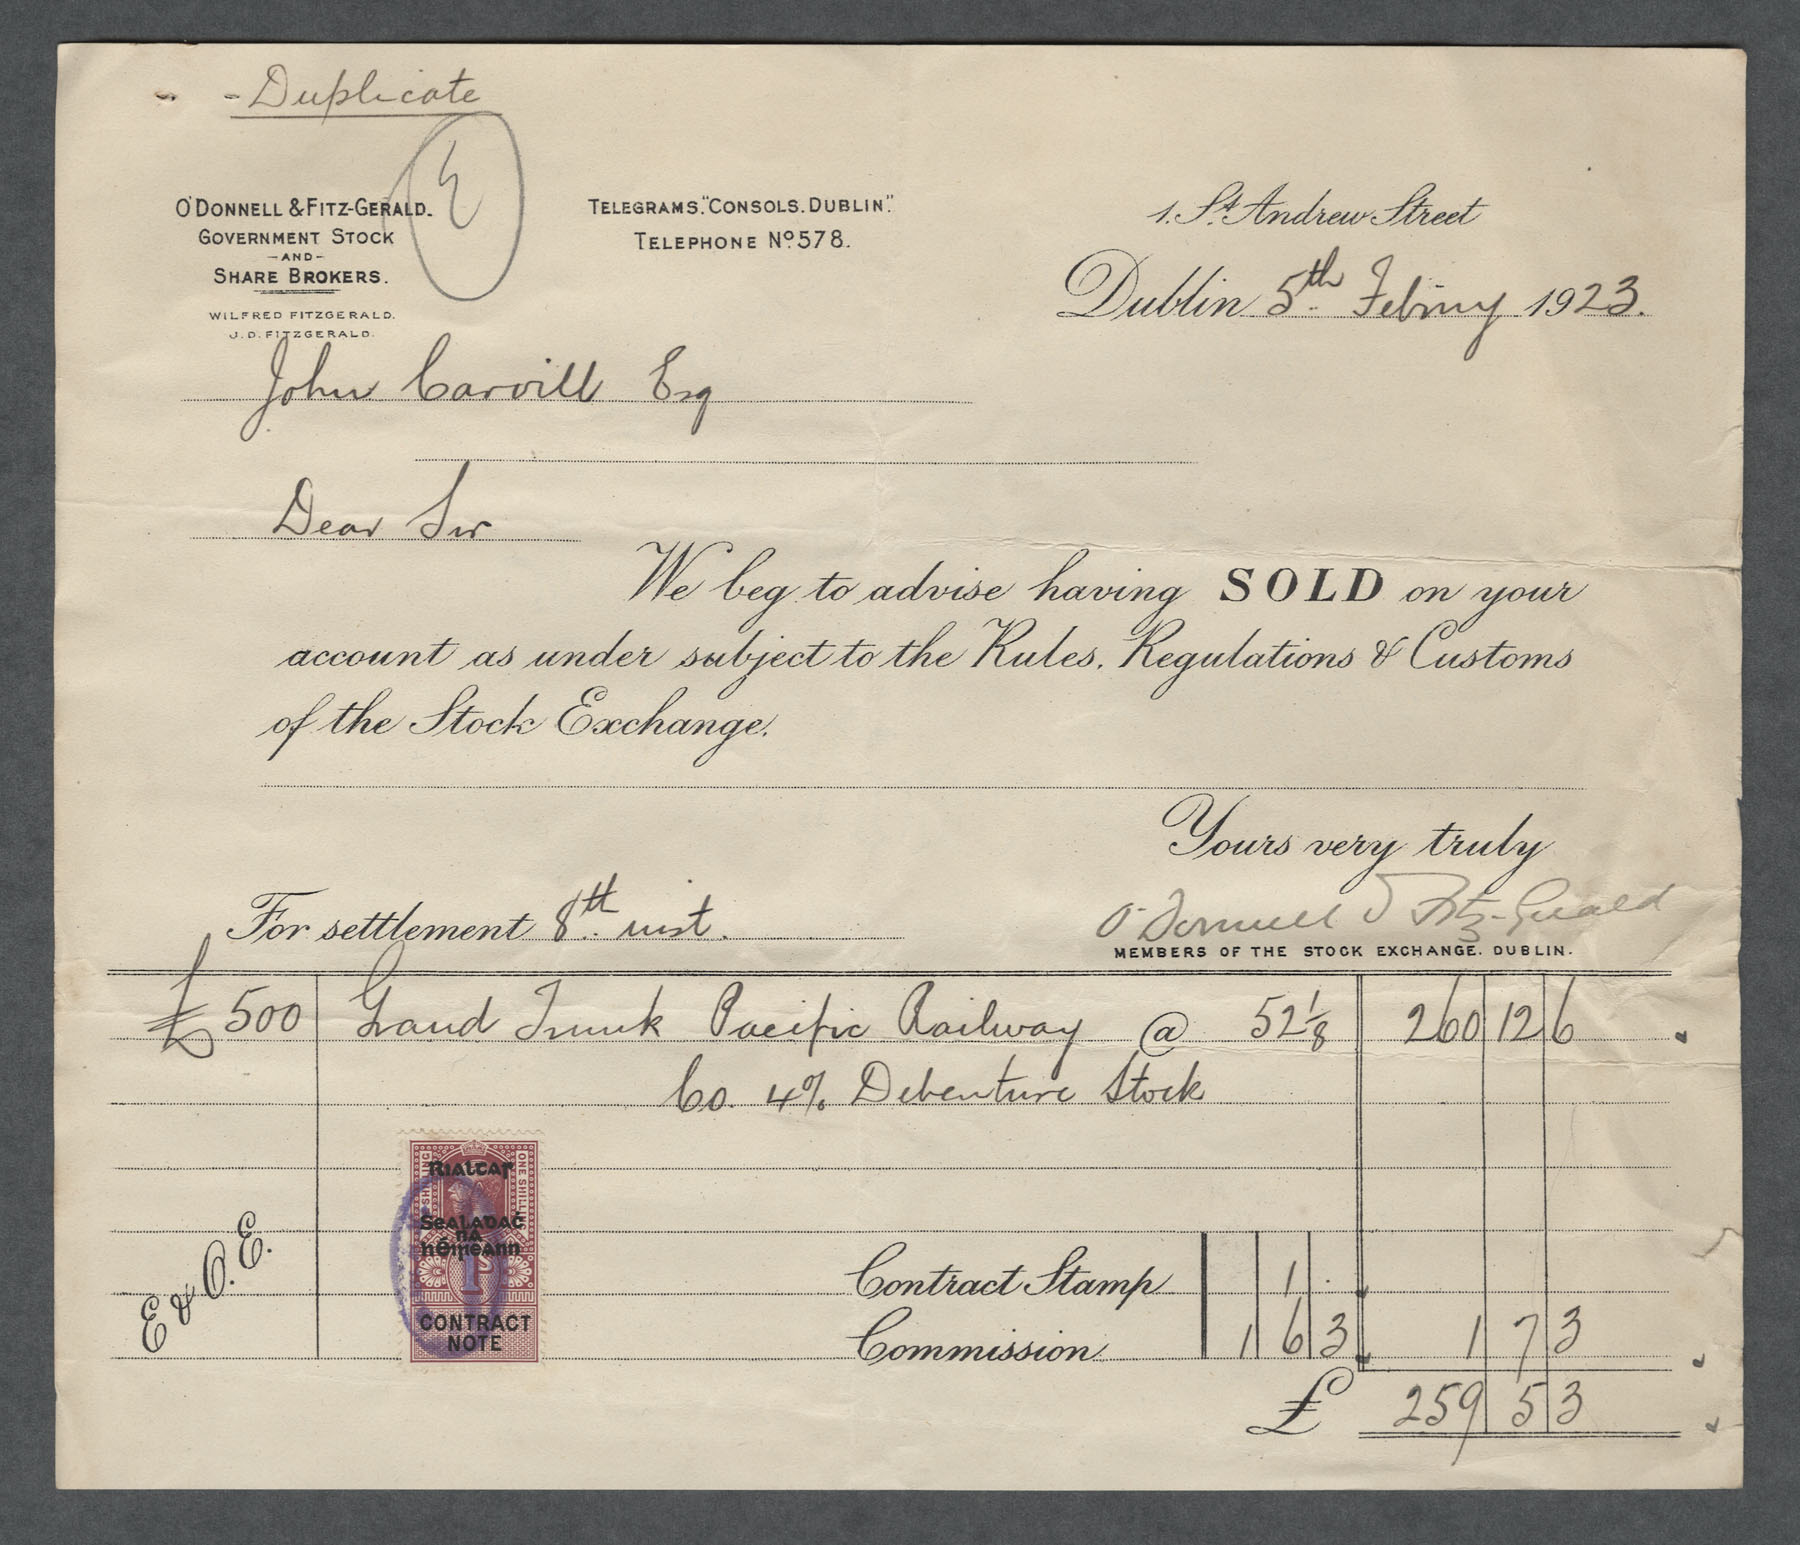 - Duplicate
O'DONNELL & FITZ-GERALD.
GOVERNMENT STOCK
-AND-
SHARE BROKERS.
WILFRED FITZGERALD.
J.D. FITZGERALD.
TELEGRAMS. "CONSOLS. DUBLIN."
TELEPHONE No 578.
1. St. Andrew Street
Dublin 5th Febr'ny 1923.
John Carvill Esq
Dear Sir
We beg to advise having SOLD on your
account as under subject to the Rules, Regulations & Customs
of the Stock Exchange.
Yours very truly
O'Donnell & Fitz-Gerald
MEMBERS OF THE STOCK EXCHANGE. DUBLIN.
For settlement 8th inst.
£500 Grand Trunk Pacific Railway @ 52 1/8 260 12 6
Co. 4% Debenture Stock
SHILLING ONE SHILLING
Rialtas
Sealadac
na
hÉireann
1s
CONTRACT
NOTE
E & O.E.
Contract Stamp 1 .
Commission 1 6 3 1 7 3
£ 259 5 3